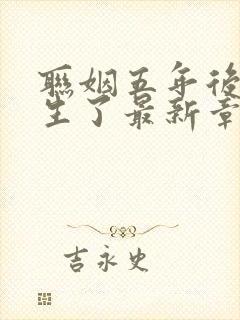 聯姻五年後
生了最新章
吉永史